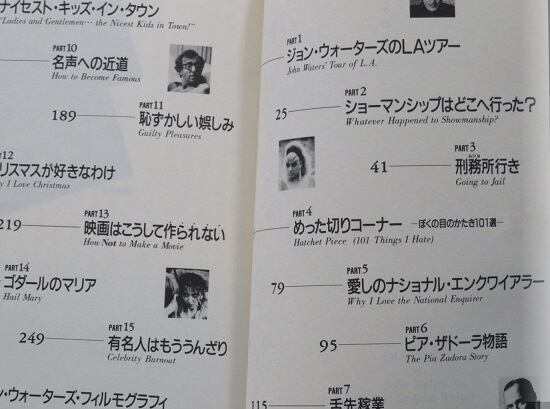 PART1
ジョン・ウォーターズのLAツアー
John Waters' Tour of L.A.
PART2
25 ショーマンシップはどこへ行った?
Whatever Happened to Showmanship?
PART3
41 刑務所行き
ムショ
Going to Jail
PART4
めった切りコーナー —ぼくの目のかたき101選—
Hatchet Piece (101 Things I Hate)
PART5
79 愛しのナショナル・エンクワイアラー
Why I Love the National Enquirer
PART6
95 ピア・ザドーラ物語
The Pia Zadora Story
PART7
115 舌先稼業
ナイセスト・キッズ・イン・タウン
"Ladies and Gentlemen… the Nicest Kids in Town!"
PART10
名声への近道
How to Become Famous
PART11
189 恥ずかしい娯しみ
Guilty Pleasures
12
リスマスが好きなわけ
I Love Christmas
PART13
219 映画はこうして作られない
How Not to Make a Movie
PART14
ゴダールのマリア
Hail Mary
PART15
249 有名人はもううんざり
Celebrity Burnout
ン・ウォーターズ・フィルモグラフィ